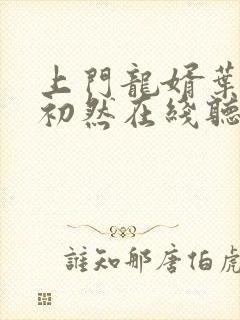 上門龍婿葉
初然在綫聽
誰知那唐伯虎